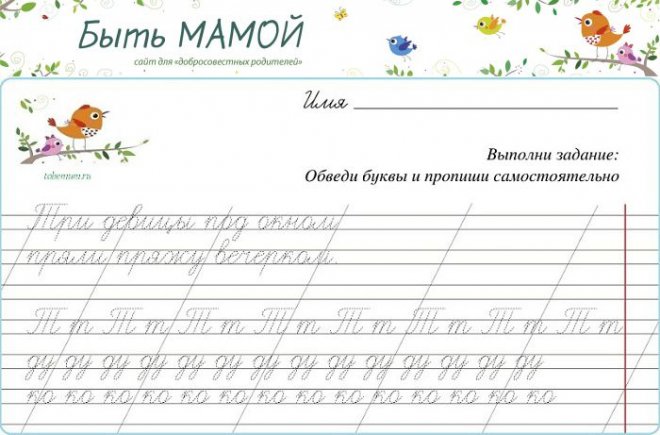 Быть МАМОЙ
сайт для «добросовестных родителей»
Имя
tobemum.ru
Выполни задание:
Обведи буквы и пропиши самостоятельно
Три девицы под окном
пряли пряжу вечерком.
Т т Т т Т т Т т Т т Т т Т т Т т
ду ду ду ду ду ду ду ду ду ду ду ду ду ду
ко ко ко ко ко ко ко ко ко ко ко ко ко ко